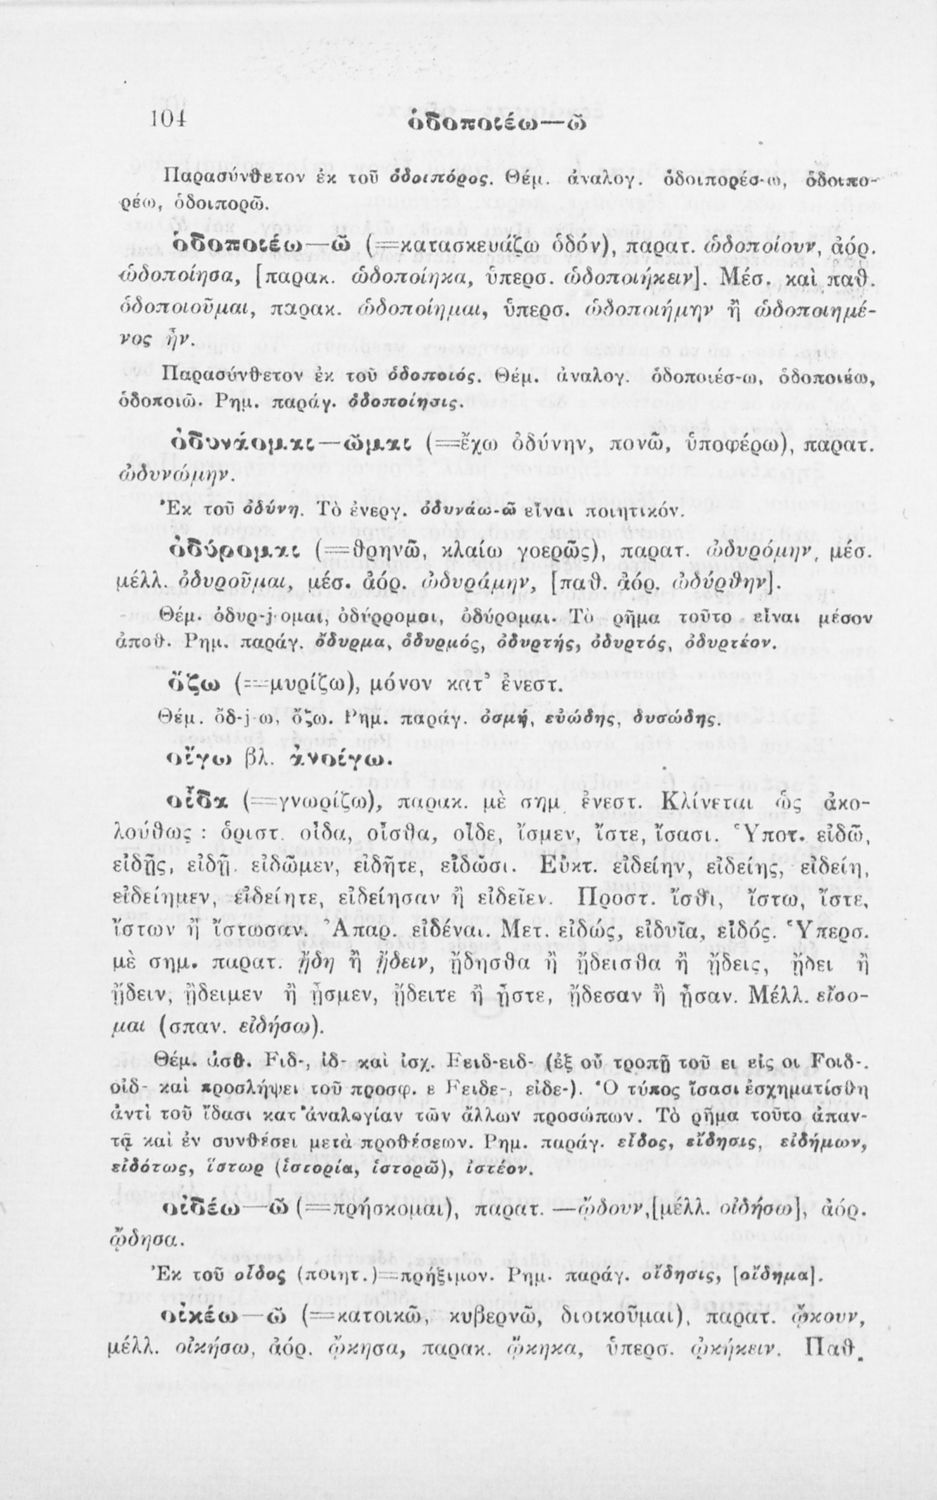 104
ὁδοποιέω—ῶ
Παρασύνθετον ἐκ τοῦ ὁδοιπόρος. Θέμ. ἀναλογ. ὁδοιπορέσ-ω, ὁδοιπο-
ρέω, ὁδοιπορῶ.
ὁδοποιέω—ῶ (=κατασκευάζω ὁδόν), παρατ. ὡδοποίουν, ἀόρ.
ὡδοποίησα, [παρακ. ὡδοποίηκα, ὑπερσ. ὡδοποιήκειν]. Μέσ. καὶ παθ.
ὁδοποιοῦμαι, παρακ. ὡδοποίημαι, ὑπερσ. ὡδοποιήμην ἢ ὡδοποιημέ-
νος ἦν.
Παρασύνθετον ἐκ τοῦ ὁδοποιός. Θέμ. ἀναλογ. ὁδοποιέσ-ω, ὁδοποιέω,
ὁδοποιῶ. Ρημ. παράγ. ὁδοποίησις.
ὀδυνάομαι—ῶμαι (=ἔχω ὀδύνην, πονῶ, ὑποφέρω), παρατ.
ὠδυνώμην.
Ἐκ τοῦ ὀδύνη. Τὸ ἐνεργ. ὀδυνάω-ῶ εἶναι ποιητικόν.
ὀδύρομαι (=θρηνῶ, κλαίω γοερῶς), παρατ. ὠδυρόμην, μέσ.
μέλλ. ὀδυροῦμαι, μέσ. ἀόρ. ὠδυράμην, [παθ. ἀόρ. ὠδύρθην].
Θέμ. ὀδυρ-j-ομαι, ὀδύρρομαι, ὀδύρομαι. Τὸ ρῆμα τοῦτο εἶναι μέσον
ἀποθ. Ρημ. παράγ. ὄδυρμα, ὀδυρμός, ὀδυρτής, ὀδυρτός, ὀδυρτέον.
ὄζω (=μυρίζω), μόνον κατ' ἐνεστ.
Θέμ. ὀδ-j-ω, ὄζω. Ρημ. παράγ. ὀσμή, εὐώδης, δυσώδης.
οἴγω βλ. ἀνοίγω.
οἶδα (=γνωρίζω), παρακ. μὲ σημ. ἐνεστ. Κλίνεται ὡς ἀκο-
λούθως : ὁριστ. οἶδα, οἶσθα, οἶδε, ἴσμεν, ἴστε, ἴσασι. Ὑποτ. εἰδῶ,
εἰδῇς, εἰδῇ. εἰδῶμεν, εἰδῆτε, εἰδῶσι. Εὐκτ. εἰδείην, εἰδείης, εἰδείη,
εἰδείημεν, εἰδείητε, εἰδείησαν ἢ εἰδεῖεν. Προστ. ἴσθι, ἴστω, ἴστε,
ἴστων ἢ ἴστωσαν. Ἀπαρ. εἰδέναι. Μετ. εἰδώς, εἰδυῖα, εἰδός. Ὑπερσ.
μὲ σημ. παρατ. ᾔδη ἢ ᾔδειν, ᾔδησθα ἢ ᾔδεισθα ἢ ᾔδεις, ᾔδει ἢ
ᾔδειν, ᾔδειμεν ἢ ᾖσμεν, ᾔδειτε ἢ ᾖστε, ᾔδεσαν ἢ ᾖσαν. Μέλλ. εἴσο-
μαι (σπαν. εἰδήσω).
Θέμ. ἀσθ. Fιδ-, ἰδ- καὶ ἰσχ. Fειδ-ειδ- (ἐξ οὗ τροπῇ τοῦ ει εἰς οι Fοιδ-.
οἰδ- καὶ προσλήψει τοῦ προσφ. ε Fειδε-, εἰδε-). Ὁ τύπος ἴσασι ἐσχηματίσθη
ἀντὶ τοῦ ἴδασι κατ' ἀναλογίαν τῶν ἄλλων προσώπων. Τὸ ρῆμα τοῦτο ἀπαν-
τᾷ καὶ ἐν συνθέσει μετὰ προθέσεων. Ρημ. παράγ. εἶδος, εἴδησις, εἰδήμων,
εἰδότως, ἵστωρ (ἱστορία, ἱστορῶ), ἰστέον.
οἰδέω—ῶ (=πρήσκομαι), παρατ. —ᾤδουν,[μέλλ. οἰδήσω], ἀόρ.
ᾤδησα.
Ἐκ τοῦ οἶδος (ποιητ.)=πρήξιμον. Ρημ. παράγ. οἴδησις, [οἴδημα].
οἰκέω—ῶ (=κατοικῶ, κυβερνῶ, διοικοῦμαι), παρατ. ᾤκουν,
μέλλ. οἰκήσω, ἀόρ. ᾤκησα, παρακ. ᾤκηκα, ὑπερσ. ᾠκήκειν. Παθ.